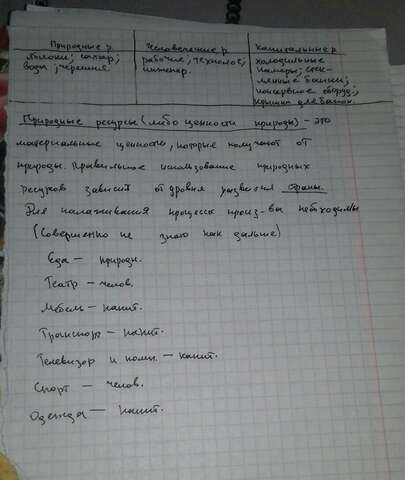 Природные р. Человеческие р. Капитальные р.
Яблоки; сахар; рабочие, технолог, холодильные
вода; черешня инженер. камеры; стек-
лянные банки;
консервное оборуд;
крышки для банок.
Природные ресурсы (либо ценности природы) - это
материальные ценности, которые получают от
природы. Правильное использование природных
ресурсов зависит от уровня развития страны.
Для налаживания процесса произ-ва необходимы
(Совершенно не знаю как дальше)
Еда - природн.
Театр - челов.
Мебель - капит.
Транспорт - капит.
Телевизор и комп. - капит.
Спорт - челов.
Одежда - капит.